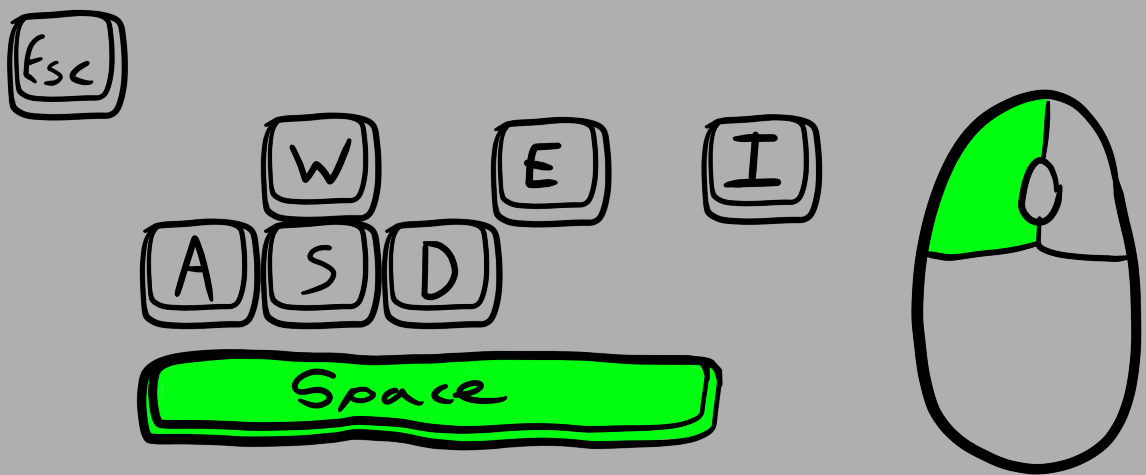 Esc
W E I
A S D
Space